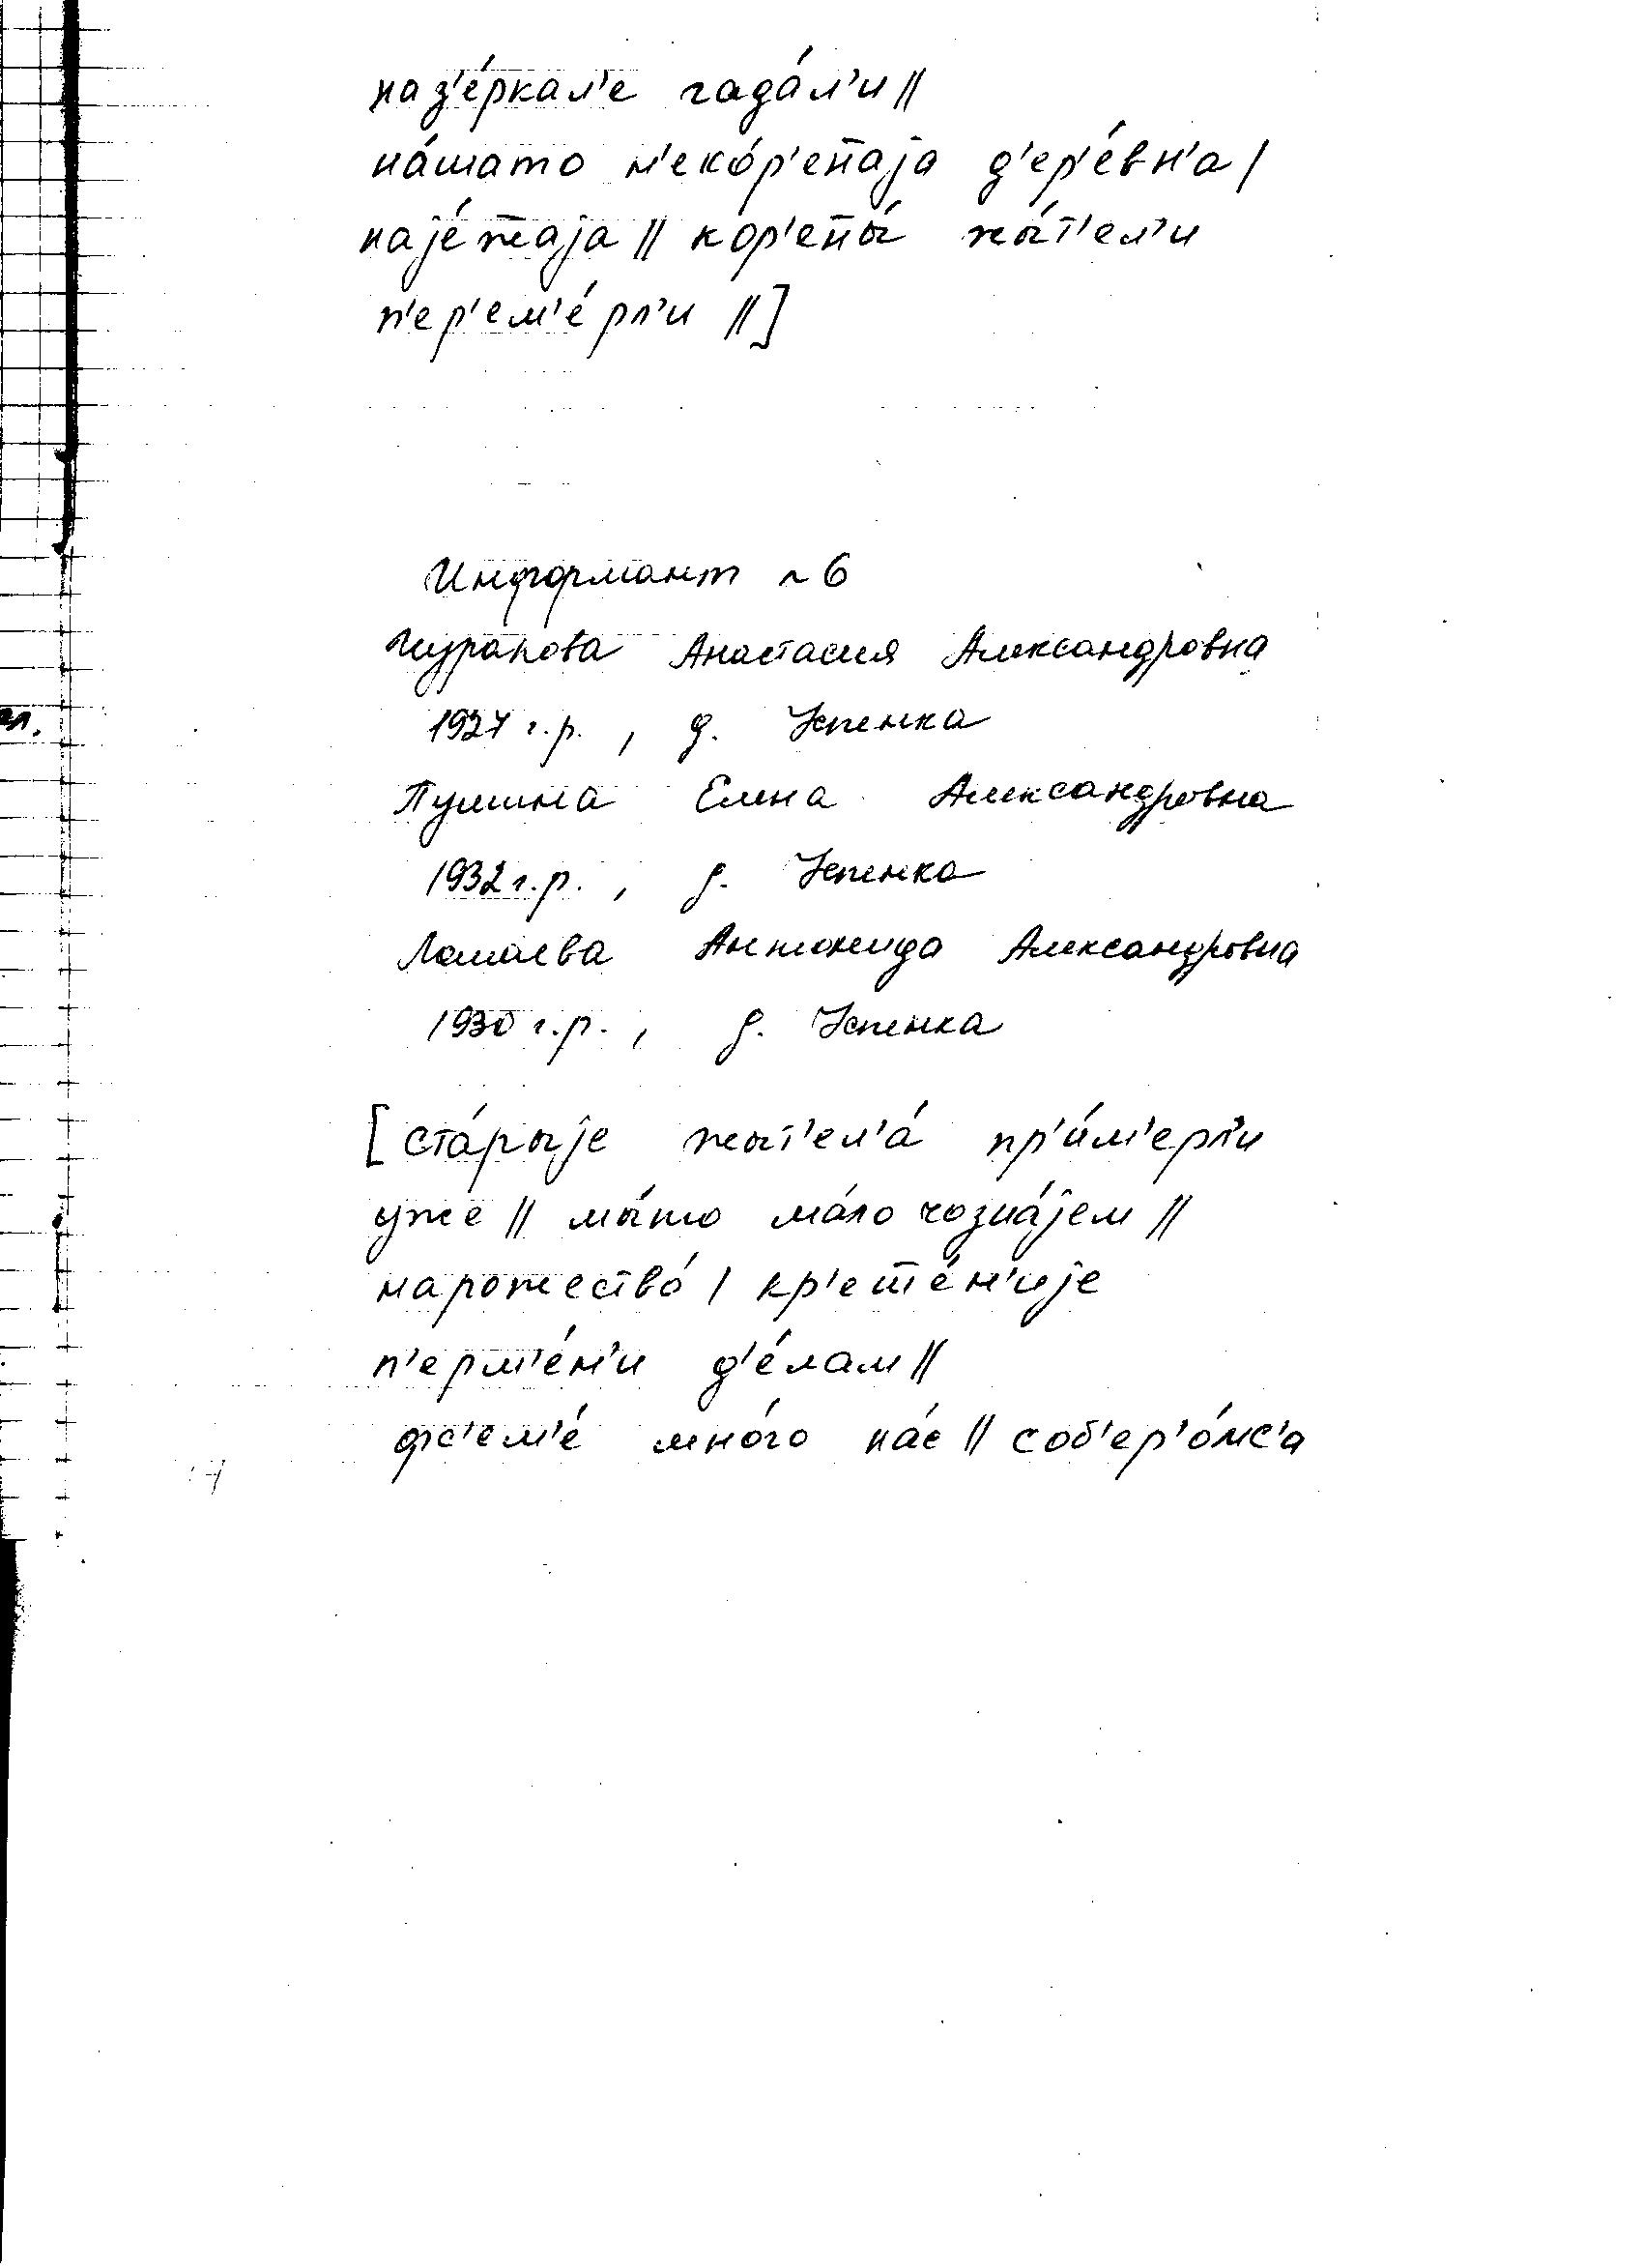 наз'е́ркал'е гада́л'и ||
на́шато н'еко́р'ен̄аjа д'ер'е́вн'а |
наjе́ж̄аjа || кор'ен̄ы́ жы́т'ел'и
п'ер'ем'е́рл'и ||]
Информант ~ 6
Анастасия Александровна
1927 г.р., д. Успенка
Пушина Елена Александровна
1932 г.р., д. Успенка
Ломаева Антонида Александровна
1930 г.р., д. Успенка
[ста́рыjе жыт'ел'а́ пр'и́м'ерл'и
уже || мы́то ма́ло чозна́jем ||
нарожество́ | кр'еш̄е́н'иjе
п'ерм'е́н'и д'е́лам ||
фс'ем'е́ мно́го на́с || соб'ер'о́мс'а